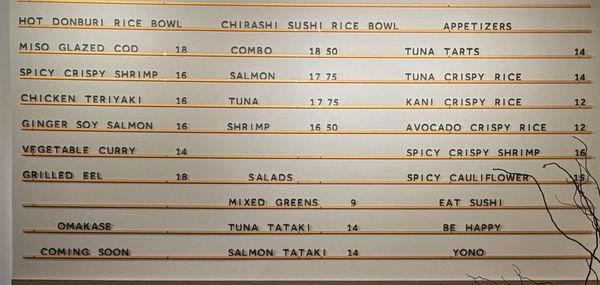 HOT DONBURI RICE BOWL
MISO GLAZED COD 18
SPICY CRISPY SHRIMP 16
CHICKEN TERIYAKI 16
GINGER SOY SALMON 16
VEGETABLE CURRY 14
GRILLED EEL 18
OMAKASE
COMING SOON
CHIRASHI SUSHI RICE BOWL
COMBO 18 50
SALMON 17 75
TUNA 17 75
SHRIMP 16 50
SALADS
MIXED GREENS 9
TUNA TATAKI 14
SALMON TATAKI 14
APPETIZERS
TUNA TARTS 14
TUNA CRISPY RICE 14
KANI CRISPY RICE 12
AVOCADO CRISPY RICE 12
SPICY CRISPY SHRIMP 16
SPICY CAULIFLOWER 15
EAT SUSHI
BE HAPPY
YONO